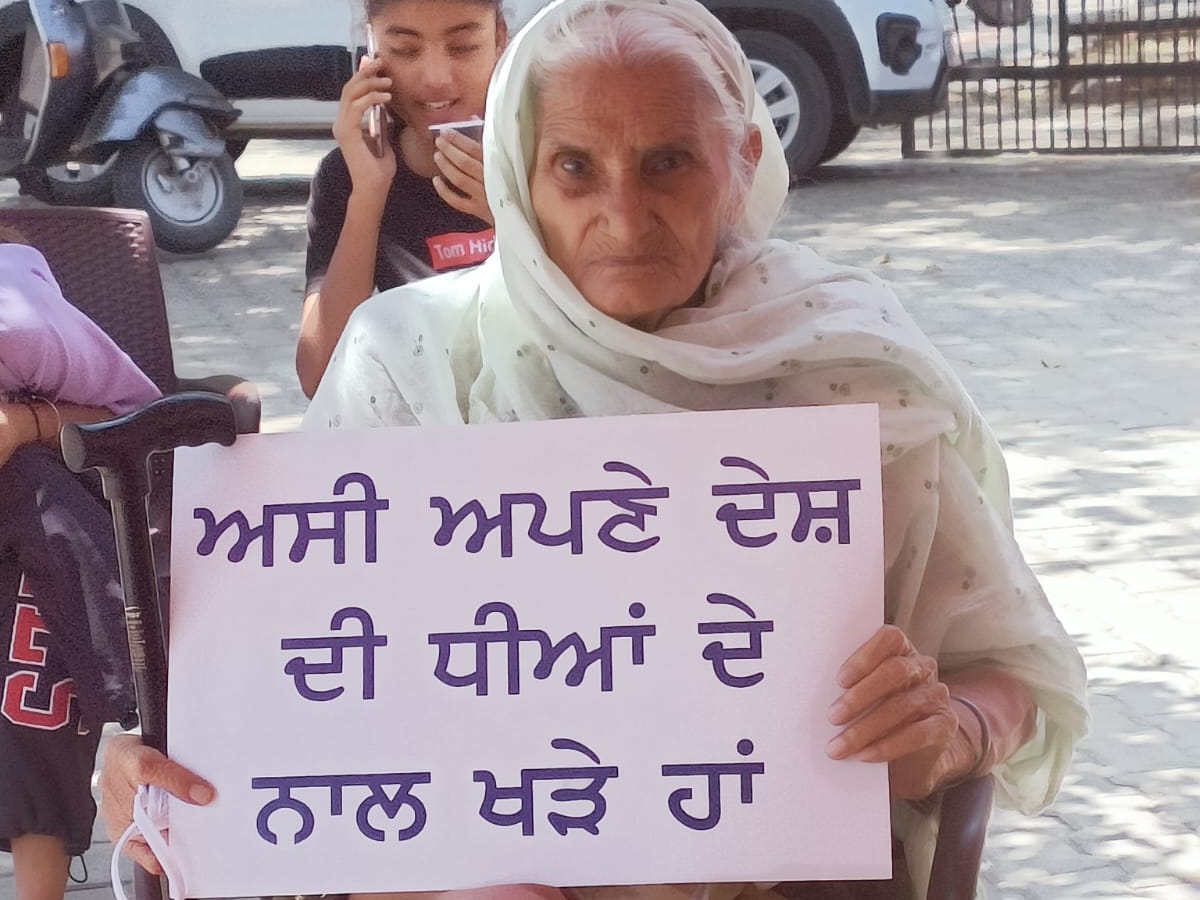 ਅਸੀ ਅਪਣੇ ਦੇਸ਼
ਦੀ ਧੀਆਂ ਦੇ
ਨਾਲ ਖੜੇ ਹਾਂ
Tom